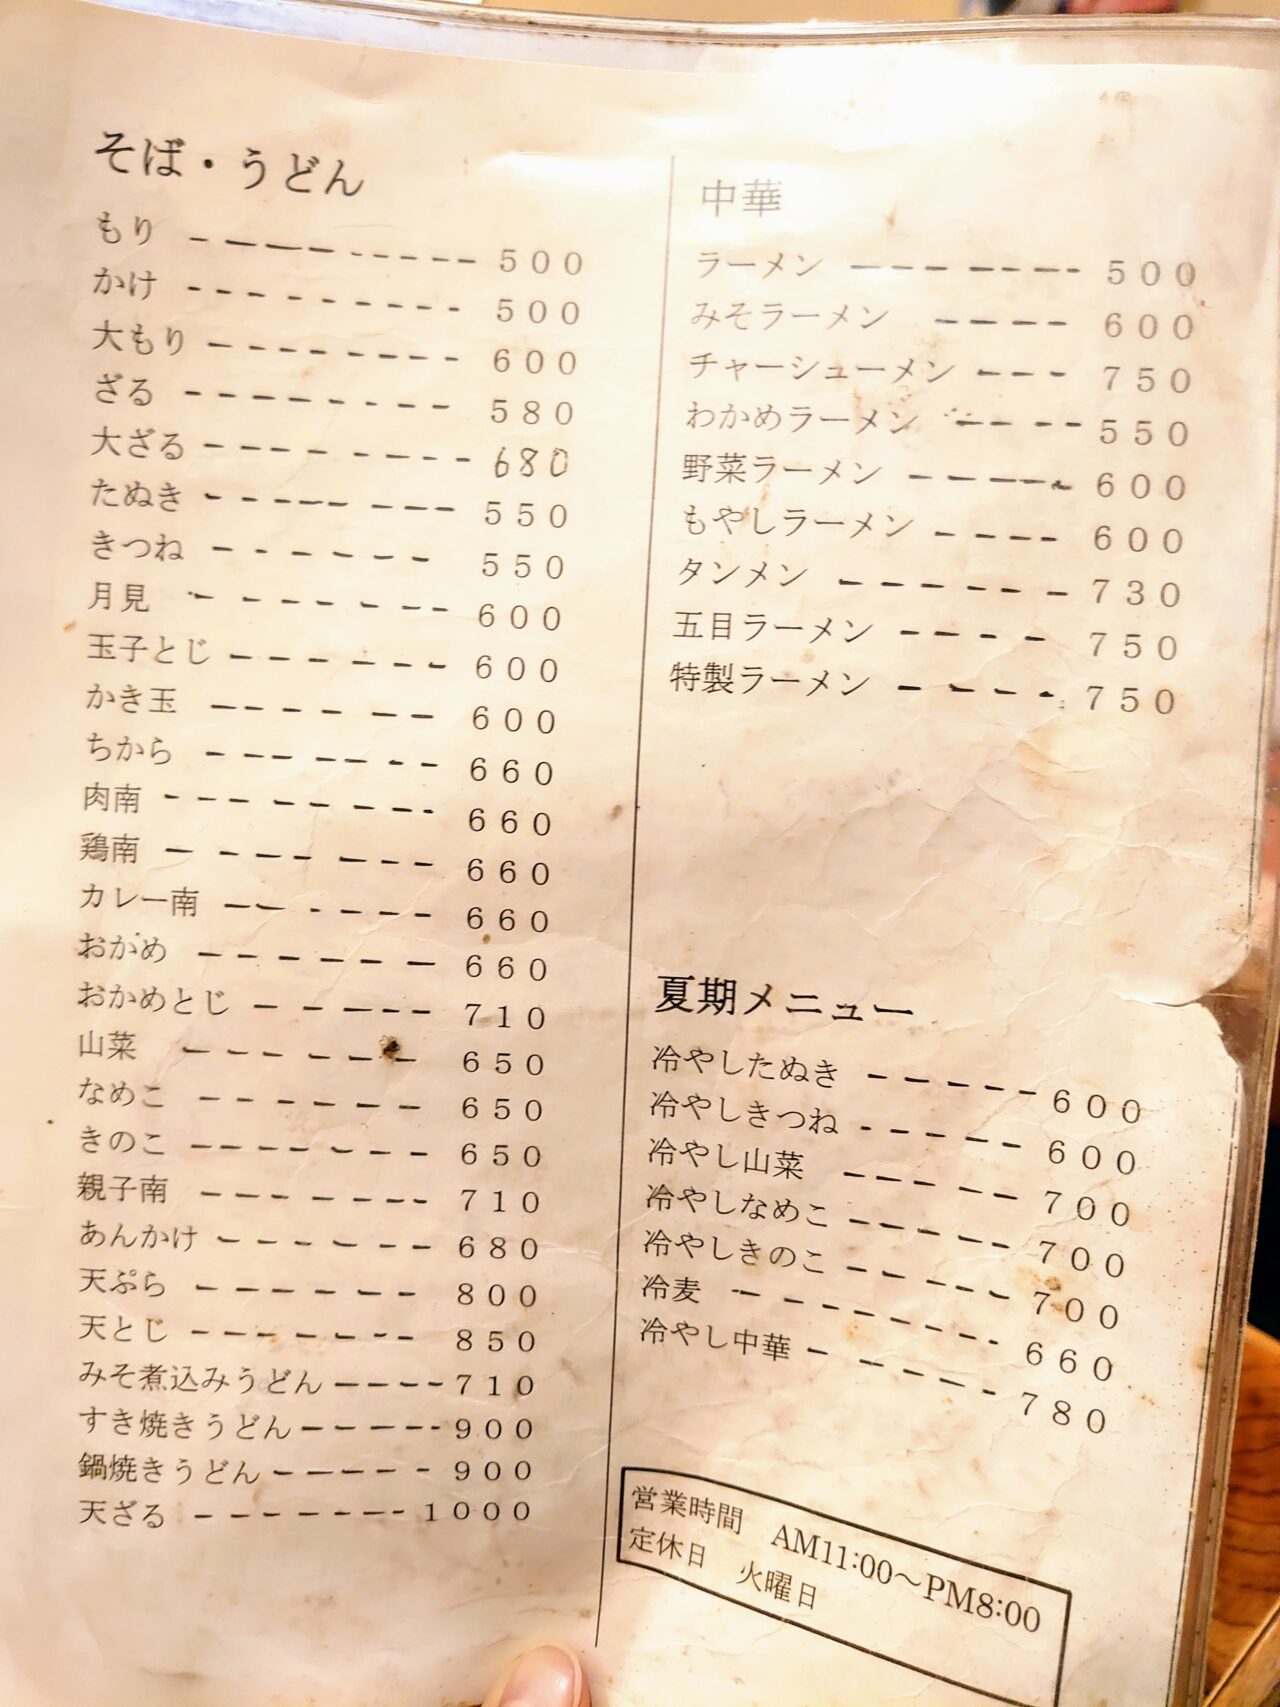 そば・うどん
もり 500
かけ 500
大もり 600
ざる 580
大ざる 680
たぬき 550
きつね 550
月見 600
玉子とじ 600
かき玉 600
ちから 660
肉南 660
鶏南 660
カレー南 660
おかめ 660
おかめとじ 710
山菜 650
なめこ 650
きのこ 650
親子南 710
あんかけ 680
天ぷら 800
天とじ 850
みそ煮込みうどん 710
すき焼きうどん 900
鍋焼きうどん 900
天ざる 1000
中華
ラーメン 500
みそラーメン 600
チャーシューメン 750
わかめラーメン 550
野菜ラーメン 600
もやしラーメン 600
タンメン 730
五目ラーメン 750
特製ラーメン 750
夏期メニュー
冷やしたぬき 600
冷やしきつね 600
冷やし山菜 700
冷やしなめこ 700
冷やしきのこ 700
冷麦 660
冷やし中華 780
営業時間 AM11:00～PM8:00
定休日 火曜日